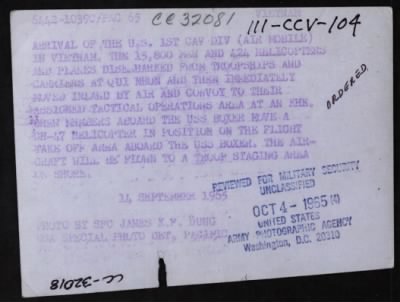 5442-1039C/PAC 65
CC32081
VIETNAM
111-CCV-104
ARRIVAL OF THE U.S. 1ST CAV DIV (AIR MOBILE)
IN VIETNAM. THE 15,800 MEN AND 424 HELICOPTERS
AND PLANES DISEMBARKED FROM TROOPSHIPS AND
CARRIERS AT QUI NHON AND THEN IMMEDIATELY
MOVED INLAND BY AIR AND CONVOY TO THEIR
ASSIGNED TACTICAL OPERATIONS AREA AT AN KHE.
CREW MEMBERS ABOARD THE USS BOXER MOVE A
CH-47 HELICOPTER IN POSITION ON THE FLIGHT
TAKE OFF AREA ABOARD THE USS BOXER. THE AIR-
CRAFT WILL BE FLOWN TO A TROOP STAGING AREA
ON SHORE.
ORDERED
14 SEPTEMBER 1965
PHOTO BY SPC JAMES K.F. DUNG
SPECIAL PHOTO DET, PACIFIC
REVIEWED FOR MILITARY SECURITY
UNCLASSIFIED
OCT 4 - 1965
UNITED STATES
ARMY PHOTOGRAPHIC AGENCY
Washington, D.C. 20310